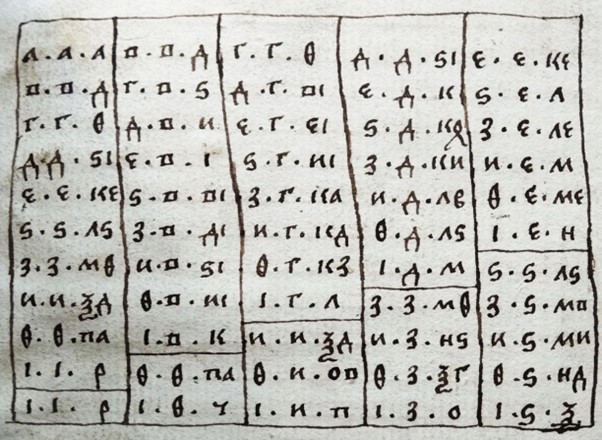 а · а · а в · в · д г · г · ѳ д · д · ѕі е · е · ке
в · в · д г · в · ѕ д · г · ві е · д · к ѕ · е · л
г · г · ѳ д · в · и е · г · еі ѕ · д · кд з · е · ле
д · д · ѕі е · в · і ѕ · г · иі з · д · ки и · е · м
е · е · ке ѕ · в · ві з · г · ка и · д · лв ѳ · е · ме
ѕ · ѕ · лѕ з · в · ді и · г · кд ѳ · д · лѕ і · е · н
з · з · мѳ и · в · ѕі ѳ · г · кз і · д · м ѕ · ѕ · лѕ
и · и · ѯд ѳ · в · иі і · г · л з · з · мѳ з · ѕ · мв
ѳ · ѳ · па і · в · к и · и · ѯд и · з · нѕ и · ѕ · ми
і · і · р ѳ · ѳ · па ѳ · и · ов ѳ · з · ѯг ѳ · ѕ · нд
і · і · р і · ѳ · ч і · и · п і · з · о і · ѕ · ѯ